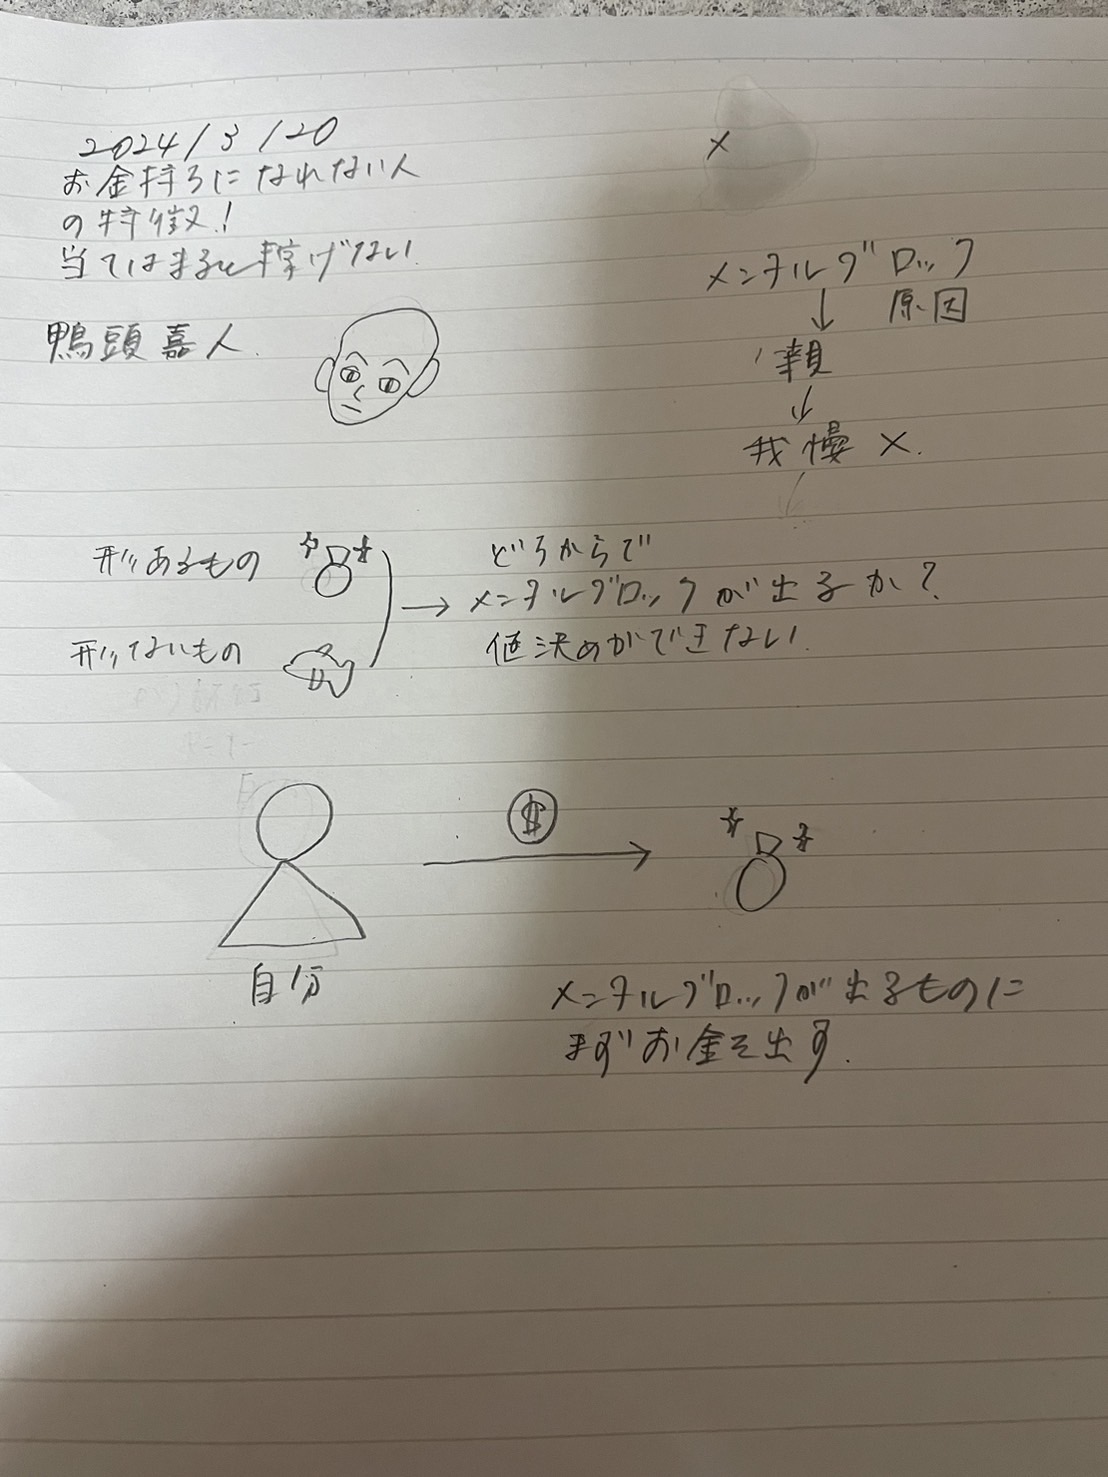 2024/3/20
お金持ちになれない人
の特徴!
当てはまると稼げない
鴨頭嘉人.
×
メンタルブロック
↓ 原因
親
↓
我慢 ×.
形あるもの
形ないもの
→
どちらからで
メンタルブロックが出るか?
値決めができない.
$
→
自分
メンタルブロックが出るものに
まずお金を出す.